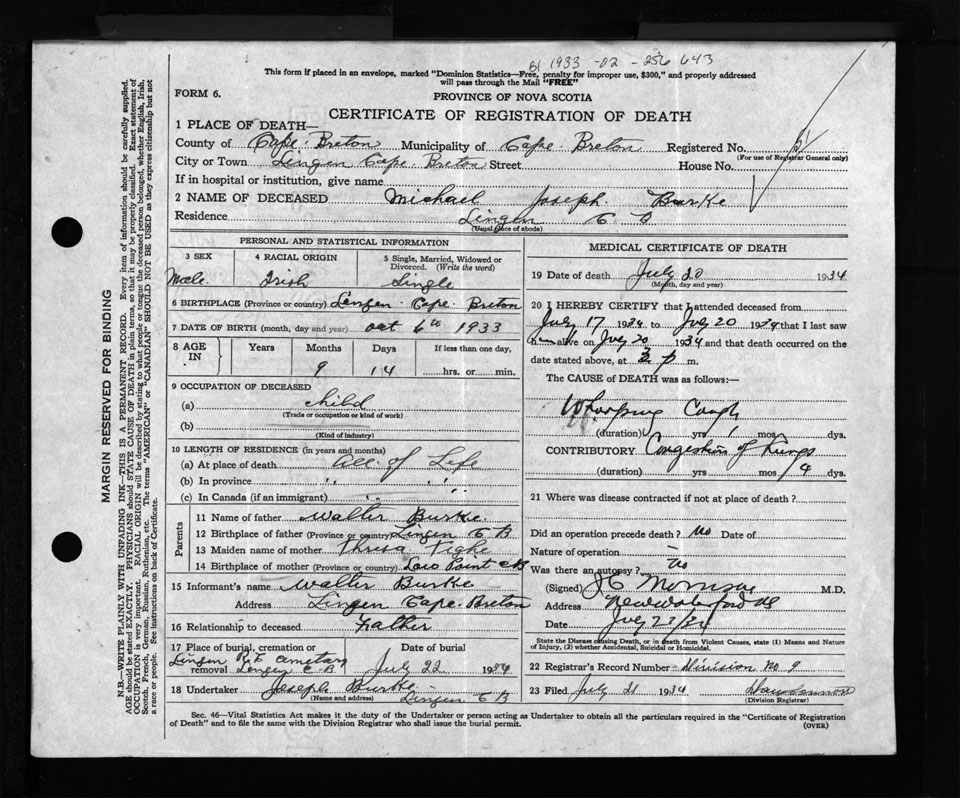 B1 1933 - 02 - 256 643
This form if placed in an envelope, marked "Dominion Statistics—Free, penalty for improper use, $300," and properly addressed
will pass through the Mail "FREE"
FORM 6.
PROVINCE OF NOVA SCOTIA
CERTIFICATE OF REGISTRATION OF DEATH
1 PLACE OF DEATH—
County of Cape Breton Municipality of Cape Breton Registered No.
(For use of Registrar General only)
City or Town Lingen Cape Breton Street House No.
If in hospital or institution, give name
2 NAME OF DECEASED Michael Joseph Burke
Residence Lingen C B
(Usual place of abode)
PERSONAL AND STATISTICAL INFORMATION
3 SEX 4 RACIAL ORIGIN 5 Single, Married, Widowed or Divorced. (Write the word)
Male Irish Single
6 BIRTHPLACE (Province or country) Lingen Cape Breton
7 DATE OF BIRTH (month, day and year) Oct 6th 1933
8 AGE IN Years Months Days If less than one day,
9 14 hrs. or min.
9 OCCUPATION OF DECEASED
(a) child
(Trade or occupation or kind of work)
(b)
(Kind of industry)
10 LENGTH OF RESIDENCE (in years and months)
(a) At place of death All of Life
(b) In province " "
(c) In Canada (if an immigrant) " "
Parents
11 Name of father Walter Burke
12 Birthplace of father (Province or country) Lingen C B
13 Maiden name of mother Thresa Tighe
14 Birthplace of mother (Province or country) Low Point C B
15 Informant's name Walter Burke
Address Lingen Cape Breton
16 Relationship to deceased Father
17 Place of burial, cremation or removal Date of burial
Lingen R.C. Cemetary Lingen C.B. July 22 1934
18 Undertaker Joseph Burke
(Name and address) Lingen C B
MEDICAL CERTIFICATE OF DEATH
19 Date of death July 20 1934
(Month, day and year)
20 I HEREBY CERTIFY that I attended deceased from
July 17 1934 to July 20 1934 that I last saw
him alive on July 20 1934 and that death occurred on the
date stated above, at 3 p m.
The CAUSE of DEATH was as follows:—
Whooping Cough
(duration) yrs 1 mos dys.
CONTRIBUTORY Congestion of Lungs
(duration) yrs mos 4 dys.
21 Where was disease contracted if not at place of death?
Did an operation precede death? No Date of
Nature of operation —
Was there an autopsy? No
(Signed) M.D.
Address New Waterford NS
Date July 21/34
State the Disease causing Death, or in death from Violent Causes, state (1) Means and Nature
of Injury, (2) whether Accidental, Suicidal or Homicidal.
22 Registrar's Record Number Division No 9
23 Filed July 21 1934
(Division Registrar)
Sec. 46—Vital Statistics Act makes it the duty of the Undertaker or person acting as Undertaker to obtain all the particulars required in the "Certificate of Registration
of Death" and to file the same with the Division Registrar who shall issue the burial permit.
(OVER)
MARGIN RESERVED FOR BINDING
N.B.—WRITE PLAINLY WITH UNFADING INK—THIS IS A PERMANENT RECORD. Every item of information should be carefully supplied.
AGE should be stated EXACTLY. PHYSICIANS should STATE CAUSE OF DEATH in plain terms, so that it may be properly classified. Exact statement of
OCCUPATION is very important. RACIAL ORIGIN will be described by stating to what people or tongue the deceased person belonged, whether English, Irish,
Scotch, French, German, Russian, Ruthenian, etc. The terms "AMERICAN" or "CANADIAN" SHOULD NOT BE USED as they express citizenship but not
a race or people. See instructions on back of Certificate.